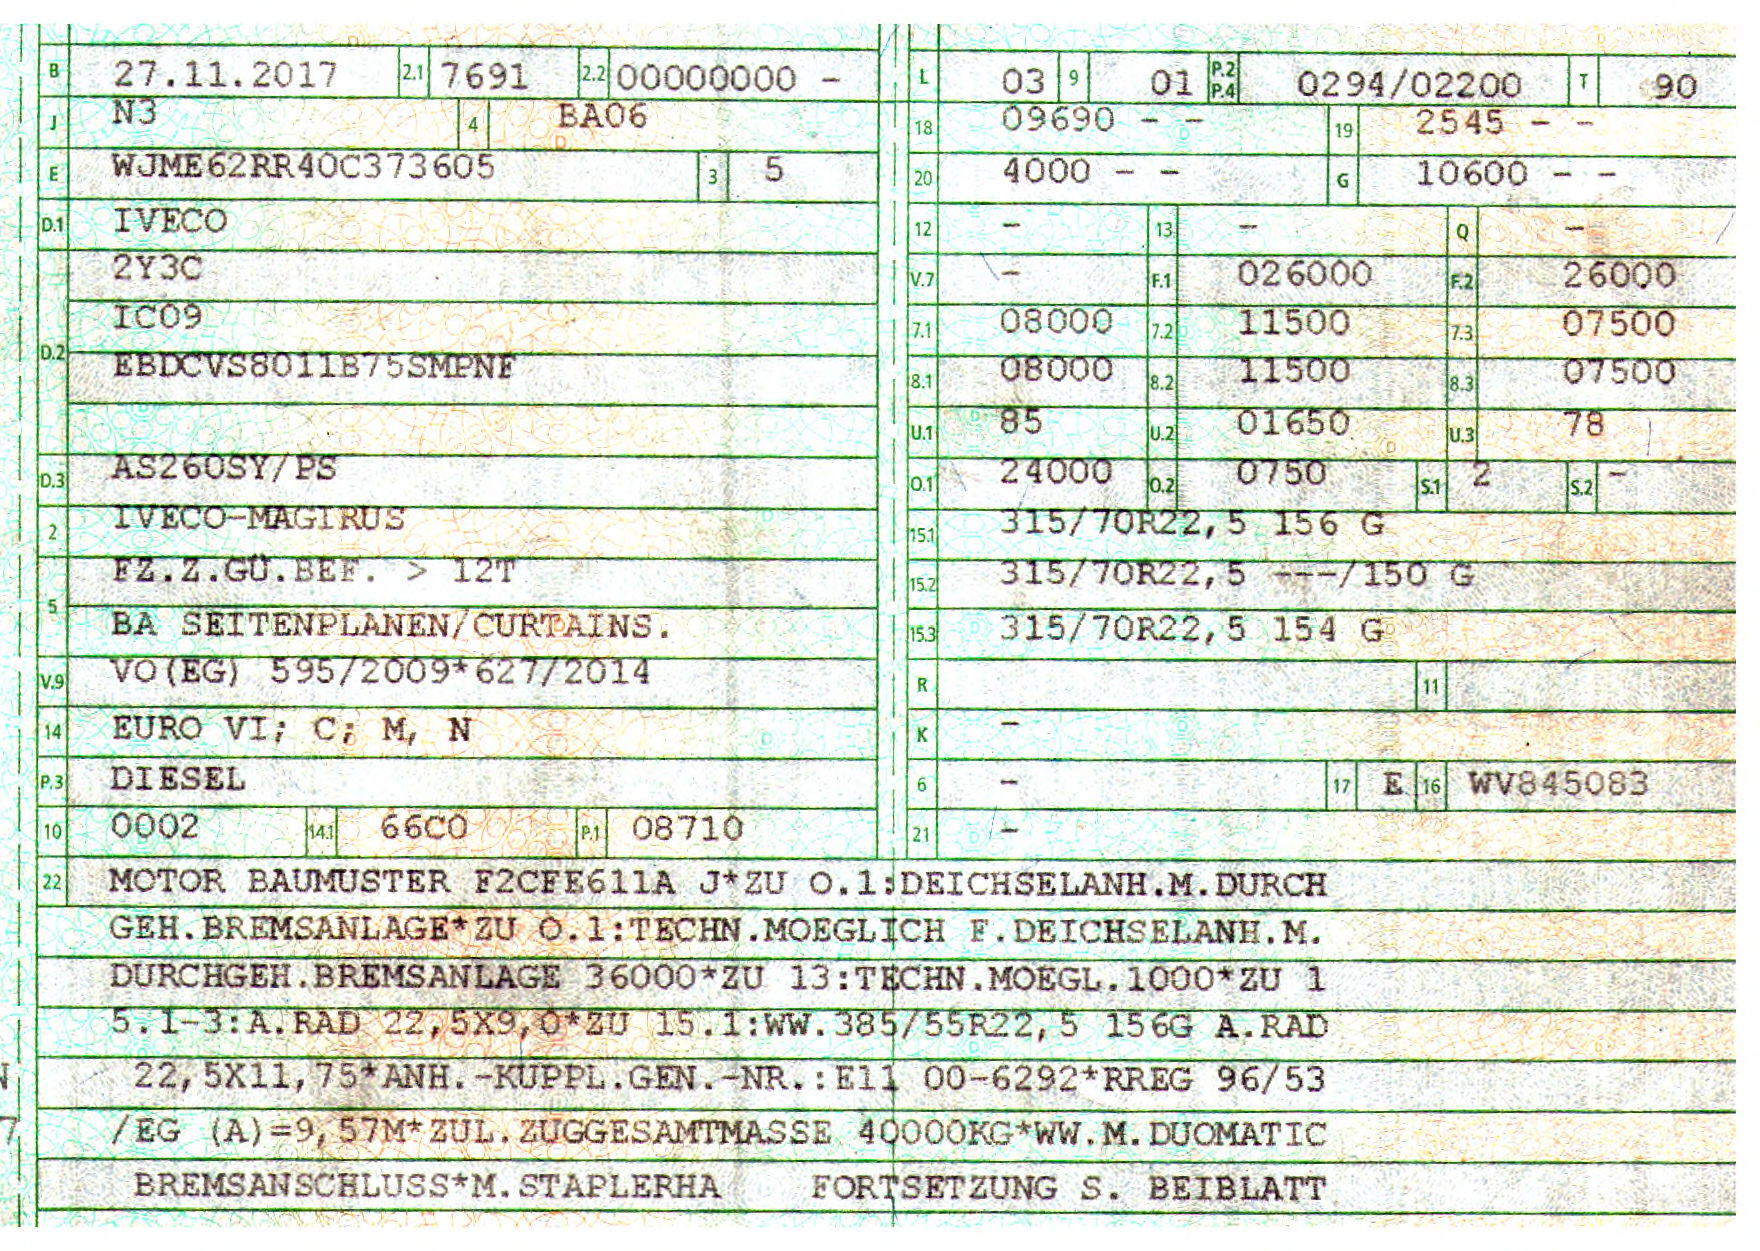 B 27.11.2017 2.1 7691 2.2 00000000 -
J N3 4 BA06
E WJME62RR40C373605 3 5
D.1 IVECO
2Y3C
IC09
D.2 EBDCVS8011B75SMPNF
D.3 AS260SY/PS
2 IVECO-MAGIRUS
FZ.Z.GÜ.BEF. > 12T
5 BA SEITENPLANEN/CURTAINS.
V.9 VO(EG) 595/2009*627/2014
14 EURO VI; C; M, N
P.3 DIESEL
10 0002 14.1 66C0 P.1 08710
L 03 9 01 P.2 P.4 0294/02200 T 90
18 09690 - - 19 2545 - -
20 4000 - - G 10600 - -
12 - 13 - Q -
V.7 - F.1 026000 F.2 26000
7.1 08000 7.2 11500 7.3 07500
8.1 08000 8.2 11500 8.3 07500
U.1 85 U.2 01650 U.3 78
O.1 24000 O.2 0750 S.1 2 S.2 -
15.1 315/70R22,5 156 G
15.2 315/70R22,5 ---/150 G
15.3 315/70R22,5 154 G
R 11
K -
6 - 17 E 16 WV845083
21 -
22 MOTOR BAUMUSTER F2CFE611A J*ZU O.1:DEICHSELANH.M.DURCH
GEH.BREMSANLAGE*ZU O.1:TECHN.MOEGLICH F.DEICHSELANH.M.
DURCHGEH.BREMSANLAGE 36000*ZU 13:TECHN.MOEGL.1000*ZU 1
5.1-3:A.RAD 22,5X9,0*ZU 15.1:WW.385/55R22,5 156G A.RAD
22,5X11,75*ANH.-KUPPL.GEN.-NR.:E11 00-6292*RREG 96/53
/EG (A)=9,57M*ZUL.ZUGGESAMTMASSE 40000KG*WW.M.DUOMATIC
BREMSANSCHLUSS*M.STAPLERHA FORTSETZUNG S. BEIBLATT